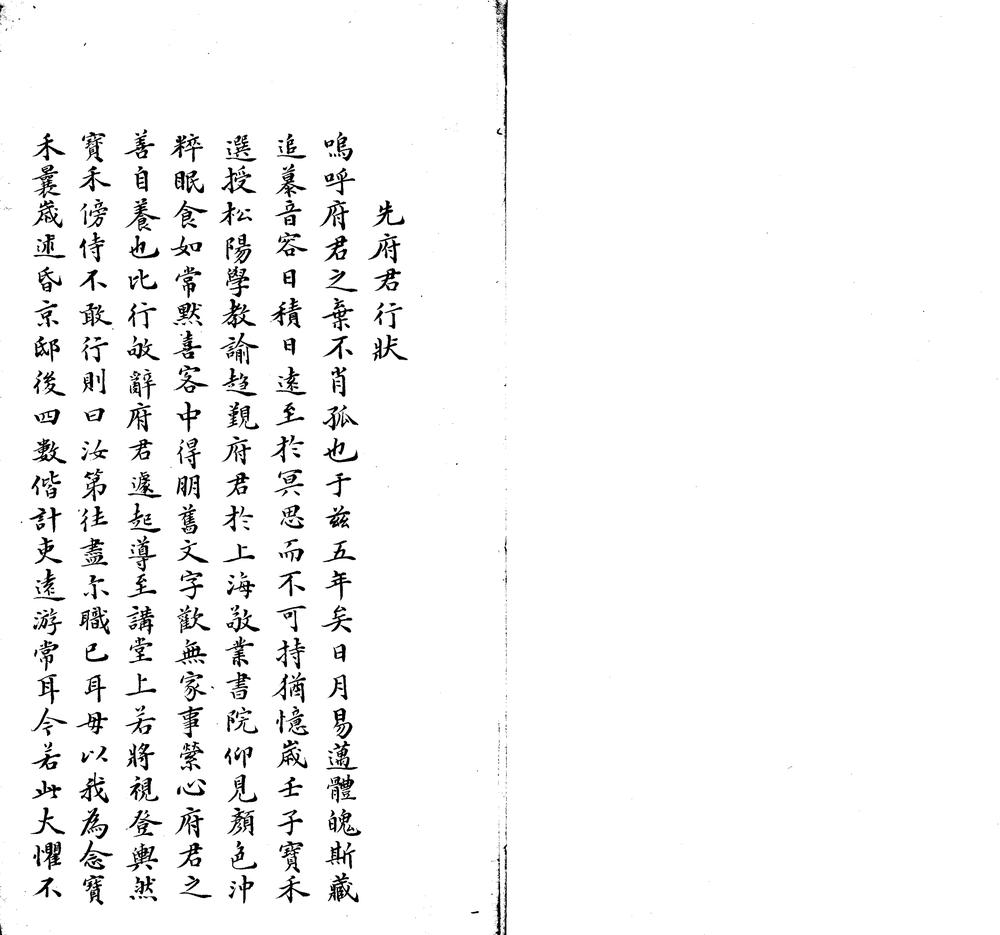 先府君行狀
嗚呼府君之棄不肖孤也于兹五年矣日月易邁體魄斯藏
追慕音容日積日遠至於冥思而不可持猶憶歲壬子寶禾
選授松陽學教諭趋覲府君於上海敬業書院仰見顏色沖
粹眠食如常黙喜客中得朋舊文字歡無家事縈心府君之
善自養也比行敂辭府君遽起導至講堂上若將視登輿然
寶禾傍侍不敢行則曰汝第往盡尔職已耳毋以我為念寶
禾曩歲述昏京邸後四數偕計吏遠游常耳今若此大懼不